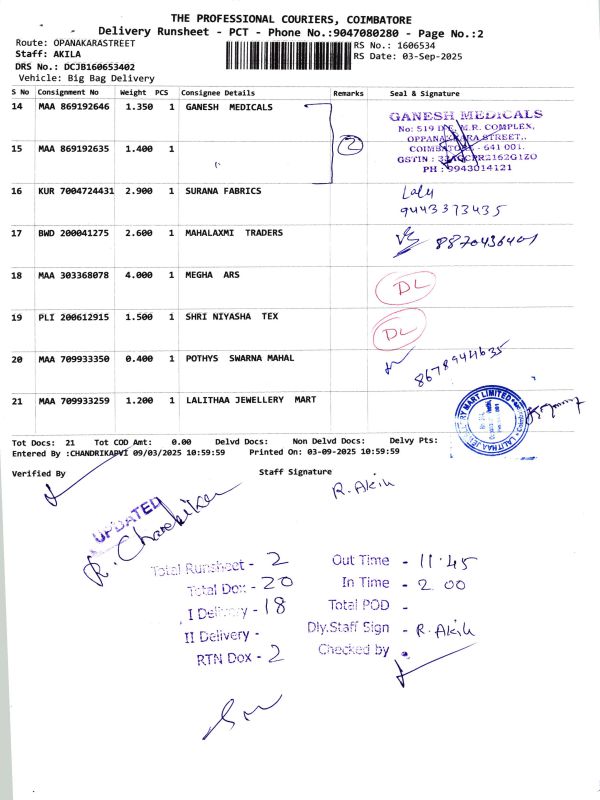 THE PROFESSIONAL COURIERS, COIMBATORE
Delivery Runsheet - PCT - Phone No.:9047080280 - Page No.:2
Route: OPANAKARASTREET
Staff: AKILA
DRS No.: DCJB160653402
Vehicle: Big Bag Delivery
RS No.: 1606534
RS Date: 03-Sep-2025
S No Consignment No Weight PCS Consignee Details Remarks Seal & Signature
14 MAA 869192646 1.350 1 GANESH MEDICALS
GANESH MEDICALS
M.R. COMPLEX,
15 MAA 869192635 1.400 1 2
COIMBATORE - 641 001.
PH : 9943014121
16 KUR 7004724431 2.900 1 SURANA FABRICS
9443373435
17 BWD 200041275 2.600 1 MAHALAXMI TRADERS 8870436401
18 MAA 303368078 4.000 1 MEGHA ARS DL
19 PLI 200612915 1.500 1 SHRI NIYASHA TEX DL
20 MAA 709933350 0.400 1 POTHYS SWARNA MAHAL 8678944635
21 MAA 709933259 1.200 1 LALITHAA JEWELLERY MART
LALITHAA JEWELLERY MART LIMITED
Tot Docs: 21 Tot COD Amt: 0.00 Delvd Docs: Non Delvd Docs: Delvy Pts:
Entered By :CHANDRIKAPVI 09/03/2025 10:59:59 Printed On: 03-09-2025 10:59:59
Verified By Staff Signature
R. Akila
UPDATED
Total Runsheet - 2
Total Dox - 20
I Delivery - 18
II Delivery -
RTN Dox - 2
Out Time - 11.45
In Time - 2.00
Total POD -
Dly.Staff Sign - R. Akila
Checked by